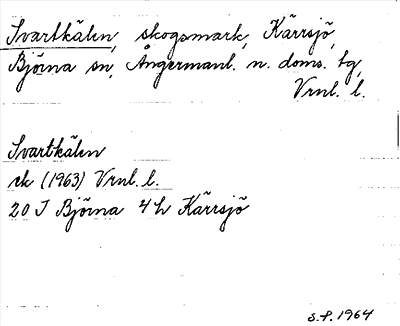 Svartkälen, skogsmark, Kärrsjö,
Björna sn, Ångermanl. n. doms. tg,
Vrnl. l.
Svartkälen
rk (1963) Vrnl. l.
20 J Björna 4 h Kärrsjö
S.P. 1964